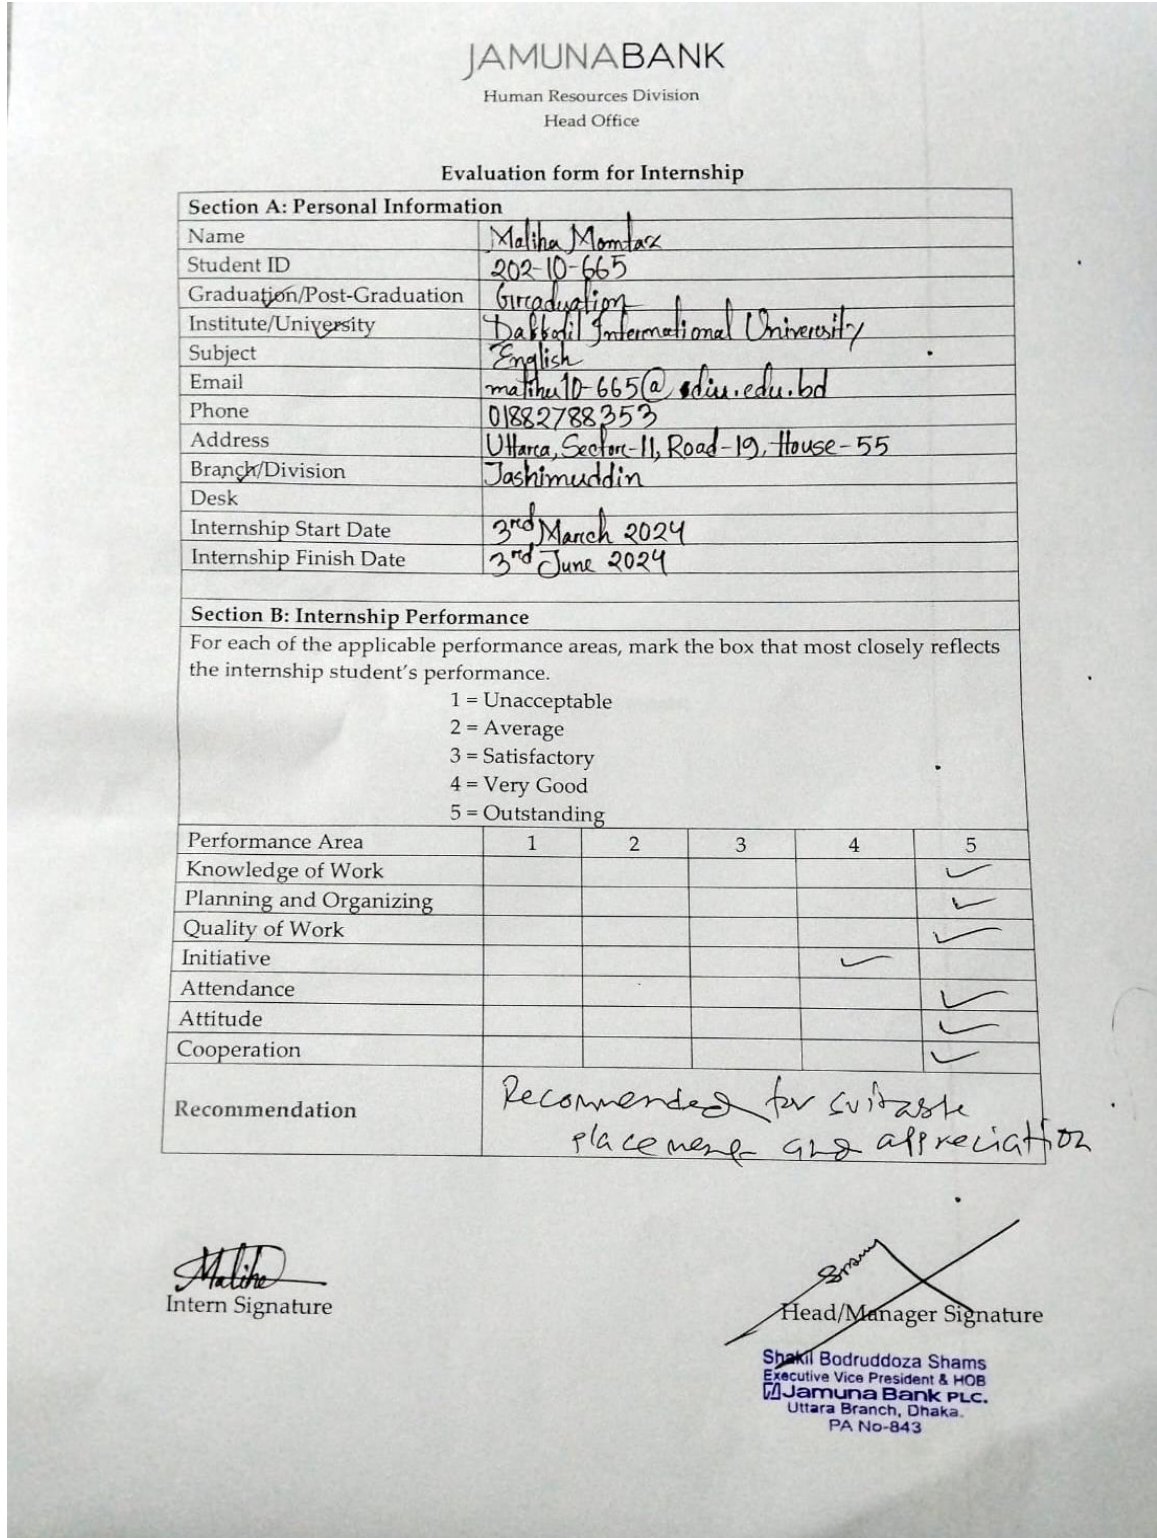 JAMUNABANK
Human Resources Division
Head Office
Evaluation form for Internship
Section A: Personal Information
Name Maliha Momtaz
Student ID 202-10-665
Graduation/Post-Graduation Graduation
Institute/University Daffodil International University
Subject English
Email 10-665@diu.edu.bd
Phone 01882788353
Address Uttara, Sector-11, Road-19, House-55
Branch/Division Jashimuddin
Desk
Internship Start Date 3rd March 2024
Internship Finish Date 3rd June 2024
Section B: Internship Performance
For each of the applicable performance areas, mark the box that most closely reflects
the internship student's performance.
1 = Unacceptable
2 = Average
3 = Satisfactory
4 = Very Good
5 = Outstanding
Performance Area 1 2 3 4 5
Knowledge of Work ✓
Planning and Organizing ✓
Quality of Work ✓
Initiative ✓
Attendance ✓
Attitude ✓
Cooperation ✓
Recommendation Recommended for suitable
placement and appreciation
Maliha
Intern Signature
Head/Manager Signature
Shakil Bodruddoza Shams
Executive Vice President & HOB
Jamuna Bank PLC.
Uttara Branch, Dhaka.
PA No-843